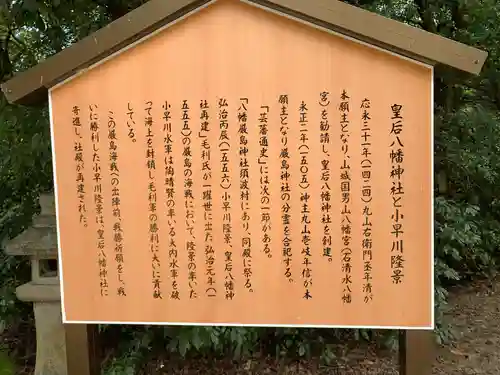 皇后八幡神社と小早川隆景
応永三十一年(一四二四)丸山右衛門丞年清が
本願主となり、山城国男山八幡宮(石清水八幡
宮)を勧請し、皇后八幡神社を創建。
永正二年(一五〇五)神主丸山壱岐年信が本
願主となり厳島神社の分霊を合祀する。
「芸藩通史」には次の一節がある。
「八幡厳島神社須波村にあり、同殿に祭る。
弘治丙辰(一五五六)小早川隆景、皇后八幡神
社再建」毛利氏が一躍世に出た弘治元年(一
五五五)の厳島の海戦において、隆景の率いた
小早川水軍は陶晴賢の率いる大内水軍を破
って海上を封鎖し毛利軍の勝利に大いに貢献
している。
この厳島海戦への出陣前、戦勝祈願をし、戦
いに勝利した小早川隆景は皇后八幡神社に
寄進し、社殿が再建された。